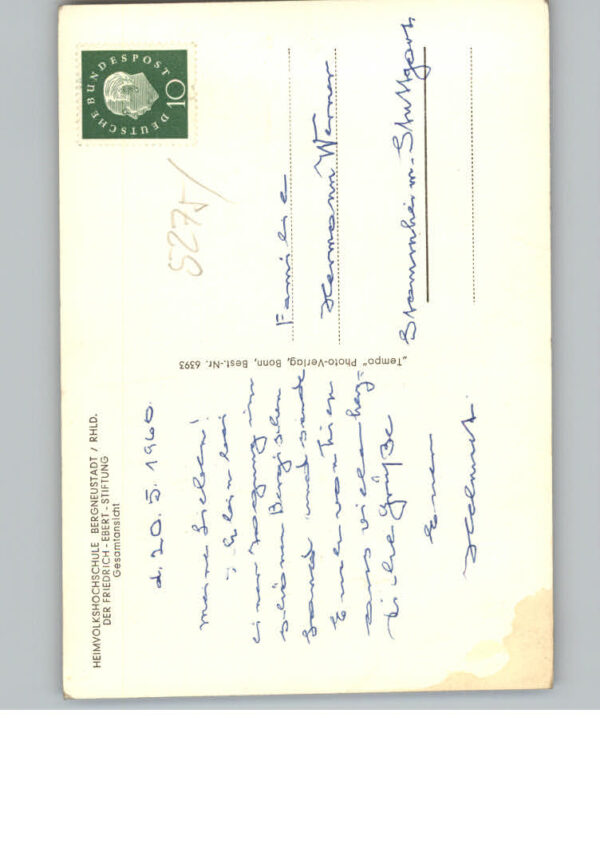 HEIMVOLKSHOCHSCHULE BERGNEUSTADT / RHLD.
DER FRIEDRICH-EBERT-STIFTUNG
Gesamtansicht
d. 20. 5. 1960.
Meine Lieben!
Ich bin bei
einer Tagung im
schönen Bergischen
Land und sende
Euch von hier
aus viele herz-
liche Grüße
Euer
Helmut.
„Tempo" Photo-Verlag, Bonn, Best.-Nr. 6393
DEUTSCHE BUNDESPOST
10
5275/
Familie
Hermann Werner
Stammheim-Stuttgart